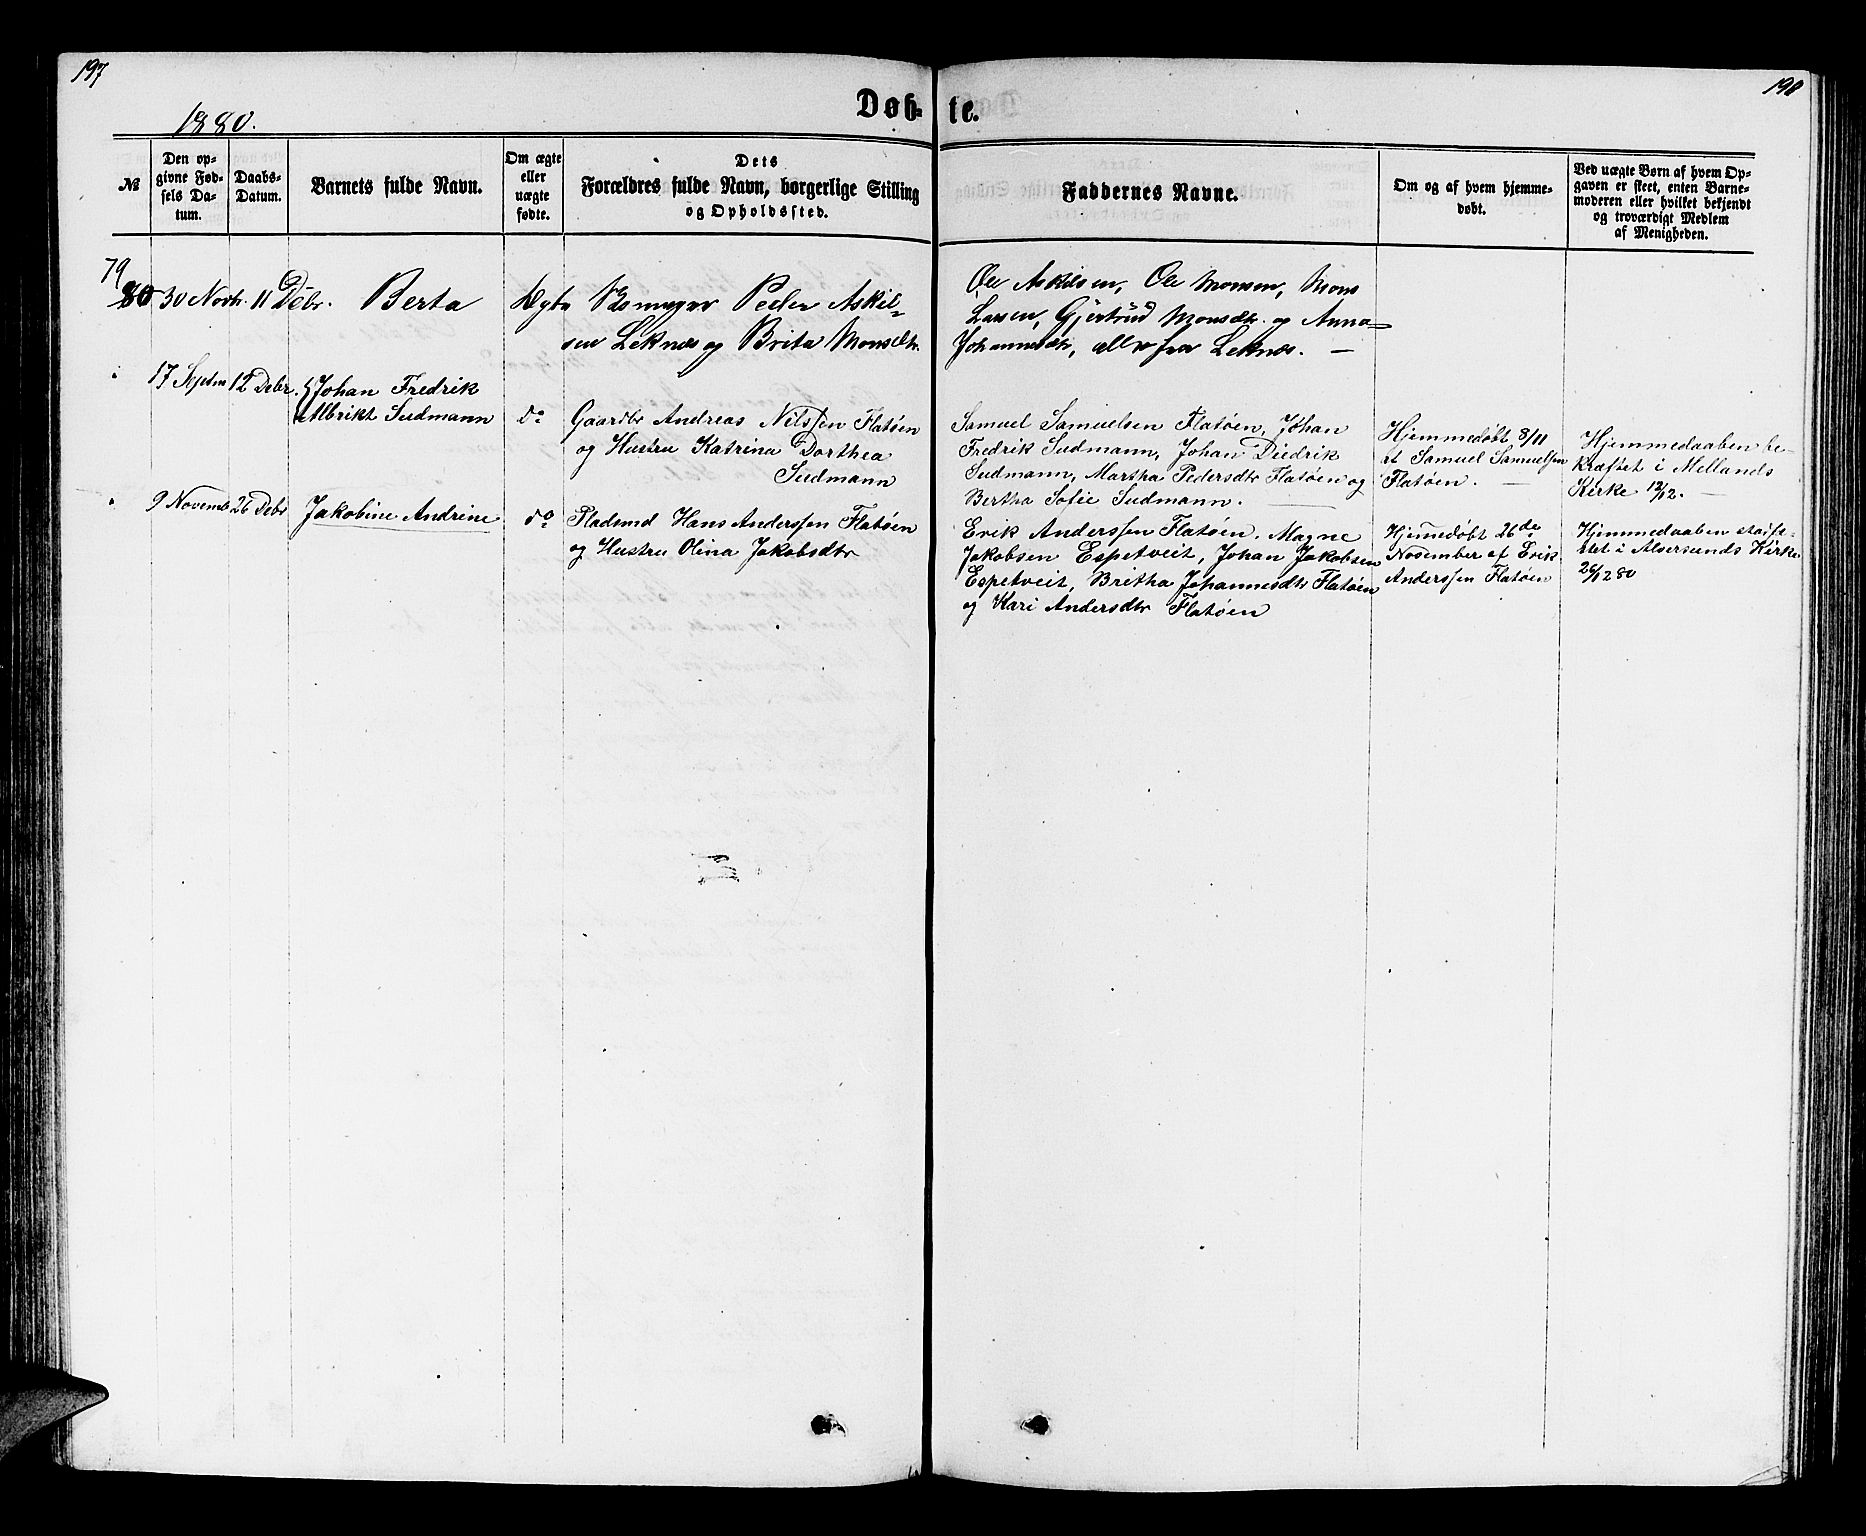 197
198
1880.
Døb-
te.
№
Den op-
givne Fød-
sels Da-
tum.
Daabs-
Datum.
Barnets fulde Navn.
Om ægte
eller
uægte
fødte.
Dets
Forældres fulde Navn, borgerlige Stilling
og Opholdssted.
Faddernes Navne.
Om og af hvem hjemme-
døbt.
Ved uægte Børn af hvem Op-
gaven er skeet, enten Barne-
moderen eller hvilket bekjendt
og troværdigt Medlem
af Menigheden.
79
80 30 Novb. 11 Debr. Berta Ægte Peder Askil-
sen Leknes og Brita Monsdtr.
Ole Askilsen, Ole Monsen, Mons
Larsen, Gjertrud Monsdtr. og Anna
Johannesdtr, alle fra Leknes. —
" 17 Septm 12 Debr. Johan Fredrik
Albrikt Sudmann do Gaardbr Andreas Nilssen Flatøen
og Hustru Katrina Dorthea
Sudmann
Samuel Samuelsen Flatøen, Johan
Fredrik Sudmann, Johan Diedrik
Sudmann, Martha Pedersdtr Flatøen og
Bertha Sofie Sudmann. —
Hjemmedøbt 8/11
af Samuel Samuelsen
Flatøen. —
Hjemmedaaben be-
kræftet i Mellands
Kirke 12/12. —
" 9 Novemb 26 Debr Jakobine Andrine do Pladsmd Hans Anderssen Flatøen
og Hustru Olina Jakobsdtr
Erik Anderssen Flatøen. Magne
Jakobsen Espetveit, Johan Jakobsen
Espetveit, Britha Johannesdtr Flatøen
og Kari Andersdtr Flatøen
Hjemmedøbt 26de
November af Erik
Anderssen Flatøen
Hjemmedaaben stadfæ-
stet i Alversunds Kirke
26/12 80